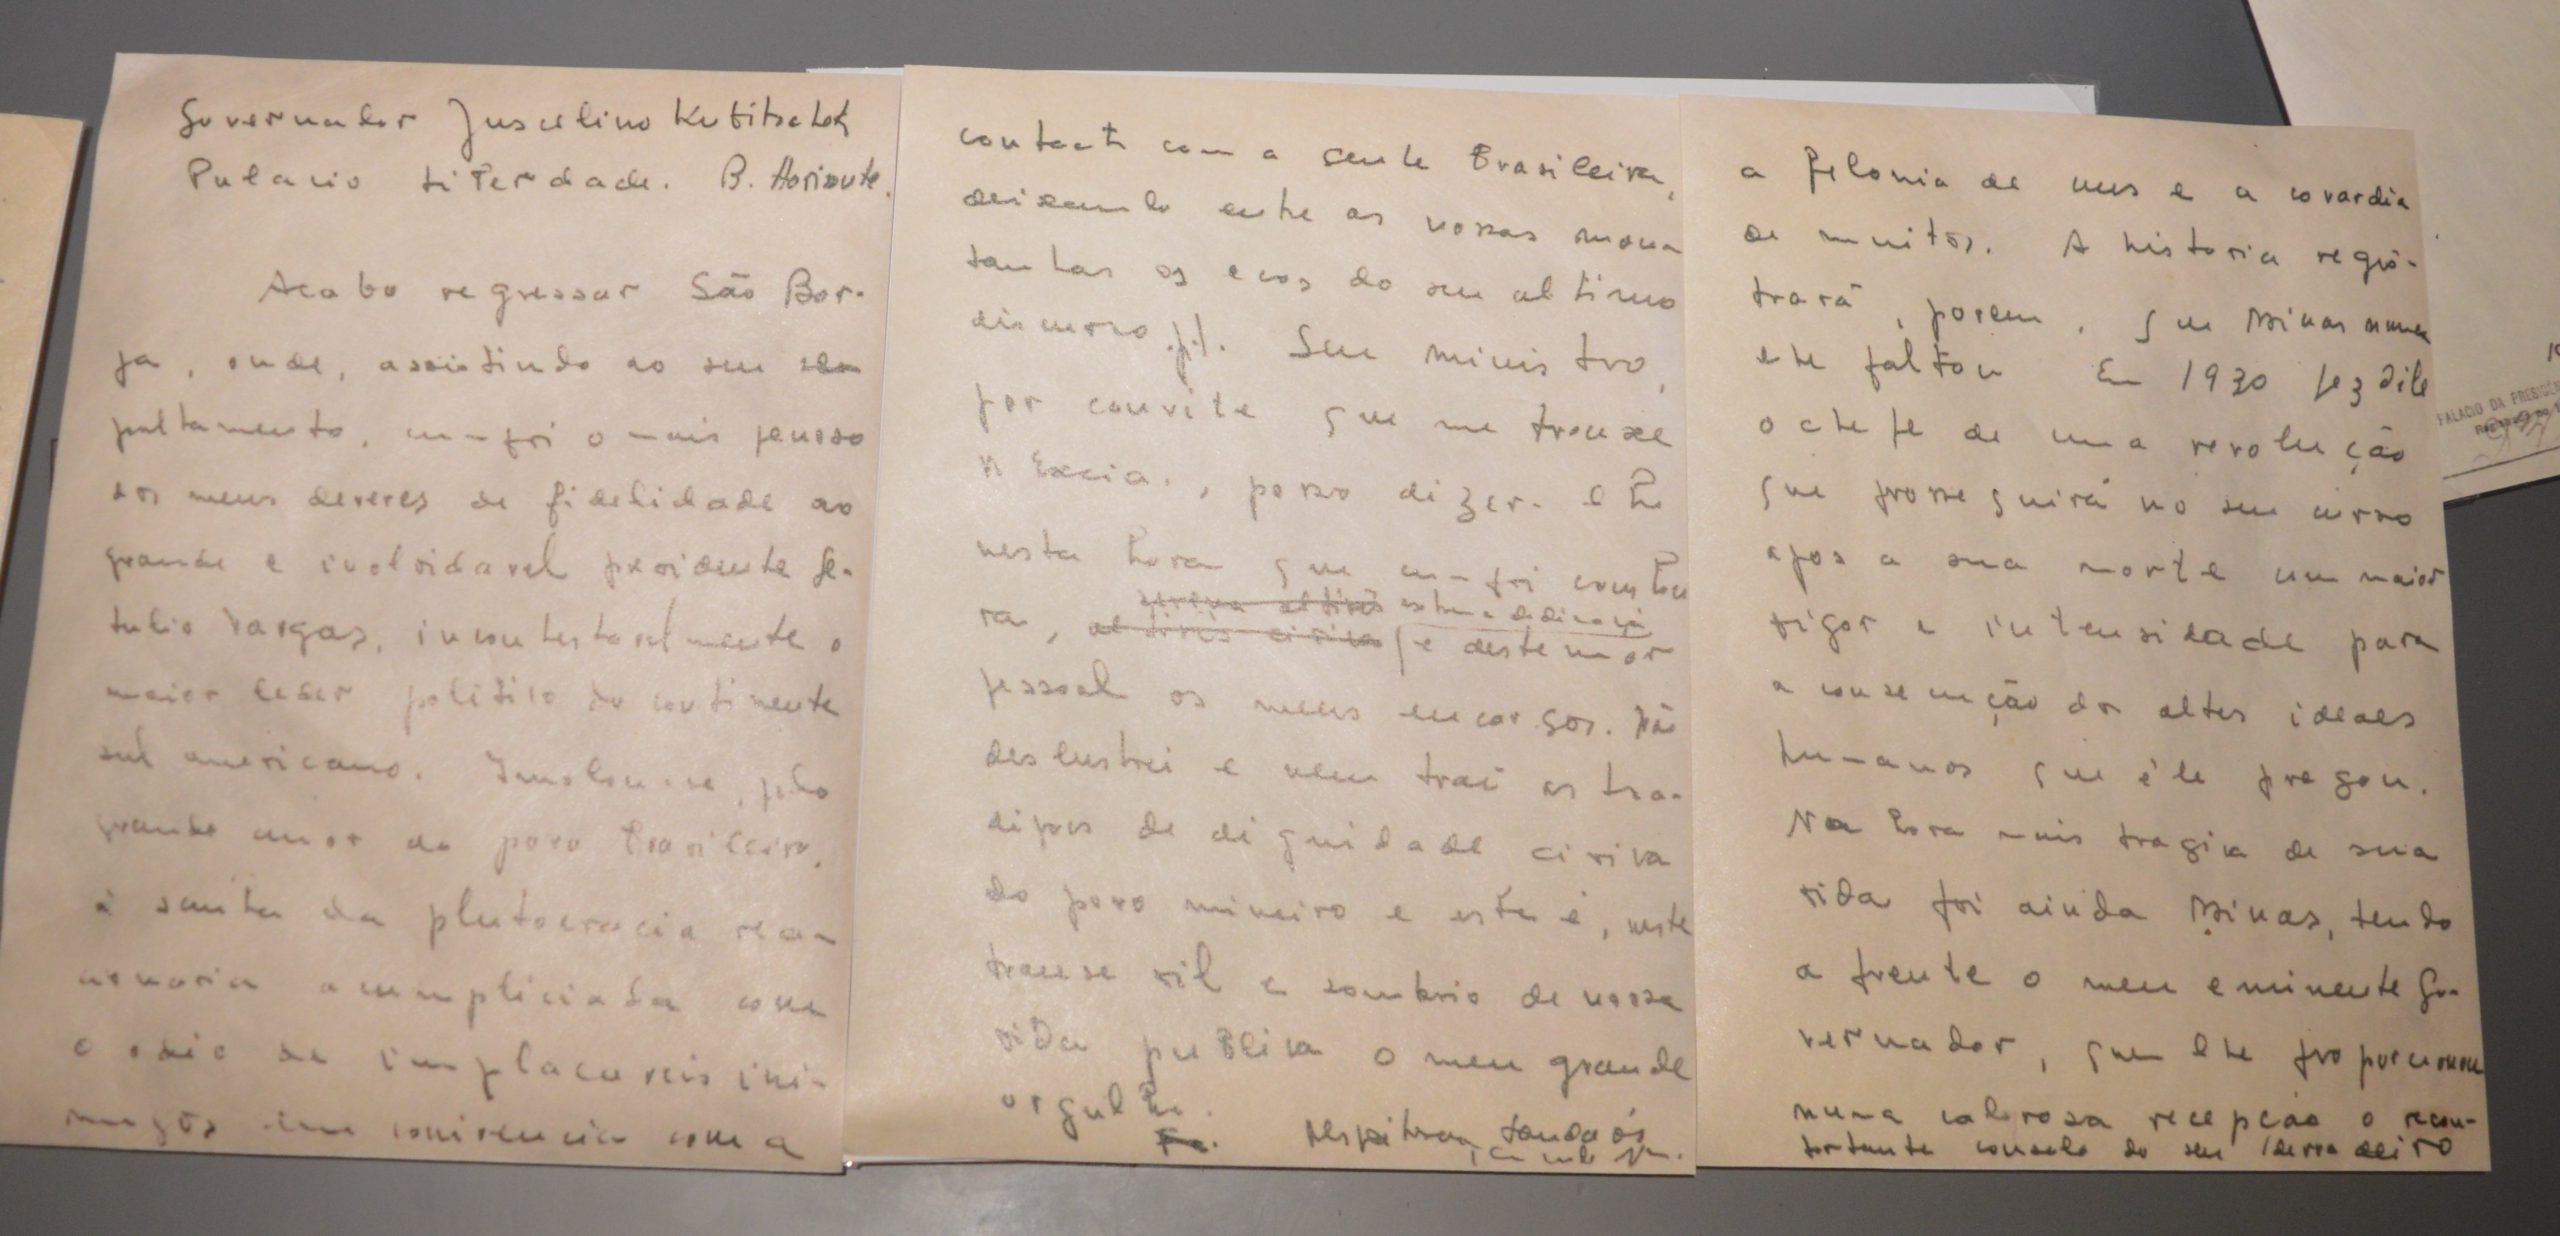 Governador Juscelino Kubitschek
Palacio Liberdade. B. Horizonte.
Acabo regressar São Bor-
ja, onde, assistindo ao seu se
pultamento, cumpri o mais penoso
dos meus deveres de fidelidade ao
grande e inolvidavel presidente Ge-
tulio Vargas, incontestavelmente o
maior lider politico do continente
sul americano. Imolou-se, pelo
grande amor do povo brasileiro,
à sanha da plutocracia rea-
cionaria acumpliciada com
o odio de implacaveis ini-
migos em conivencia com a
contacto com a gente brasileira,
deixando entre as nossas mon
tanhas os ecos do seu ultimo
discurso. pt. Seu ministro,
por convite que me trouxe
V Excia., posso dizer-lhe
nesta hora que cumpri com hon
serena altivez extrema dedicação
ra, altivez civica e destemor
pessoal os meus encargos. Não
deslustrei e nem traí as tra-
dições de dignidade civica
do povo mineiro e este é, neste
transe vil e sombrio de nossa
vida publica o meu grande
orgulho.
a felonia de uns e a covardia
de muitos. A historia regis-
trará, porem, que Minas nunca
lhe faltou Em 1930 fez dele
o chefe de uma revolução
que prosseguirá no seu curso
apos a sua morte com maior
vigor e intensidade para
a consecução dos altos ideaes
humanos que êle pregou.
Na hora mais tragica de sua
vida foi ainda Minas, tendo
a frente o meu eminente Go-
vernador, quem lhe proporcionou
numa calorosa recepção o recon-
fortante consolo do seu derradeiro
PALACIO DA PRESIDÊN